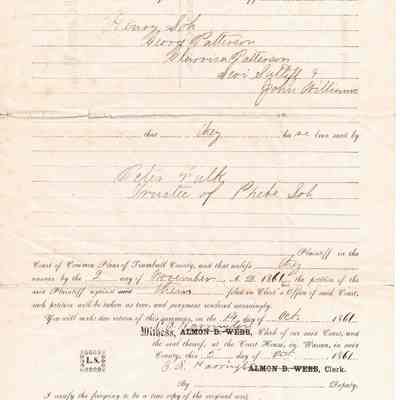 Henry Soh
George Patterson
Clarrisa Patterson
Levi Sutliff &
John Williams
that they ha ve been sued by
Peter Fulk
Trustee of Phebe Soh
Plaintiff in the
Court of Common Pleas of Trumbull County, and that unless they
answer by the 2 day of November A. D. 1861 the petition of the
said Plaintiff against them filed in Clerk's Office of said Court,
such petition will be taken as true, and judgment rendered accordingly.
You will make due return of this summons, on the 14 day of Oct 1861
Witness, ALMON D. WEBB, Clerk of our said Court, and
the seal thereof, at the Court House, in Warren, in said
County, this 2 day of Oct. 1861
L.S.
ALMON D. WEBB, Clerk.
By Deputy.
I certify the foregoing to be a true copy of the original writ